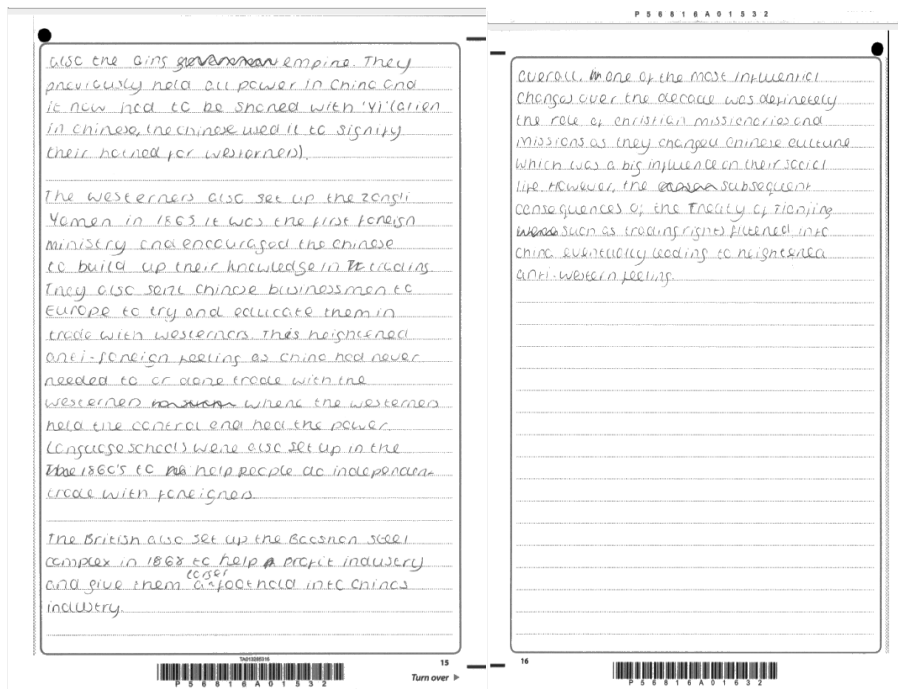 also the Qing empire. They
previously held all power in China and
it now had to be shared with 'Yi' (alien
in chinese, the chinese used it to signify
their hatred for westerners).
The westerners also set up the Zongli
Yamen in 1865. It was the first foreign
ministry and encouraged the chinese
to build up their knowledge in trading.
They also sent chinese businessmen to
Europe to try and educate them in
trade with westerners. This heightened
anti-foreign feeling as china had never
needed to or done trade with the
westerners where the westerners
held the control and had the power.
Language schools were also set up in the
1860's to help people do independent
trade with foreigners.
The British also set up the steel
complex in 1868 to help profit industry
and give them a larger foothold into Chinas
industry.
15
Turn over
P 5 6 8 1 6 A 0 1 5 3 2
P 5 6 8 1 6 A 0 1 5 3 2
overall, one of the most influential
changes over the decade was definetely
the role of christian missionaries and
missions as they changed chinese culture
which was a big influence on their social
life. However, the subsequent
consequences of the Treaty of Tianjing
such as trading rights filtered into
China eventually leading to heightened
anti-western feeling.
16
P 5 6 8 1 6 A 0 1 6 3 2